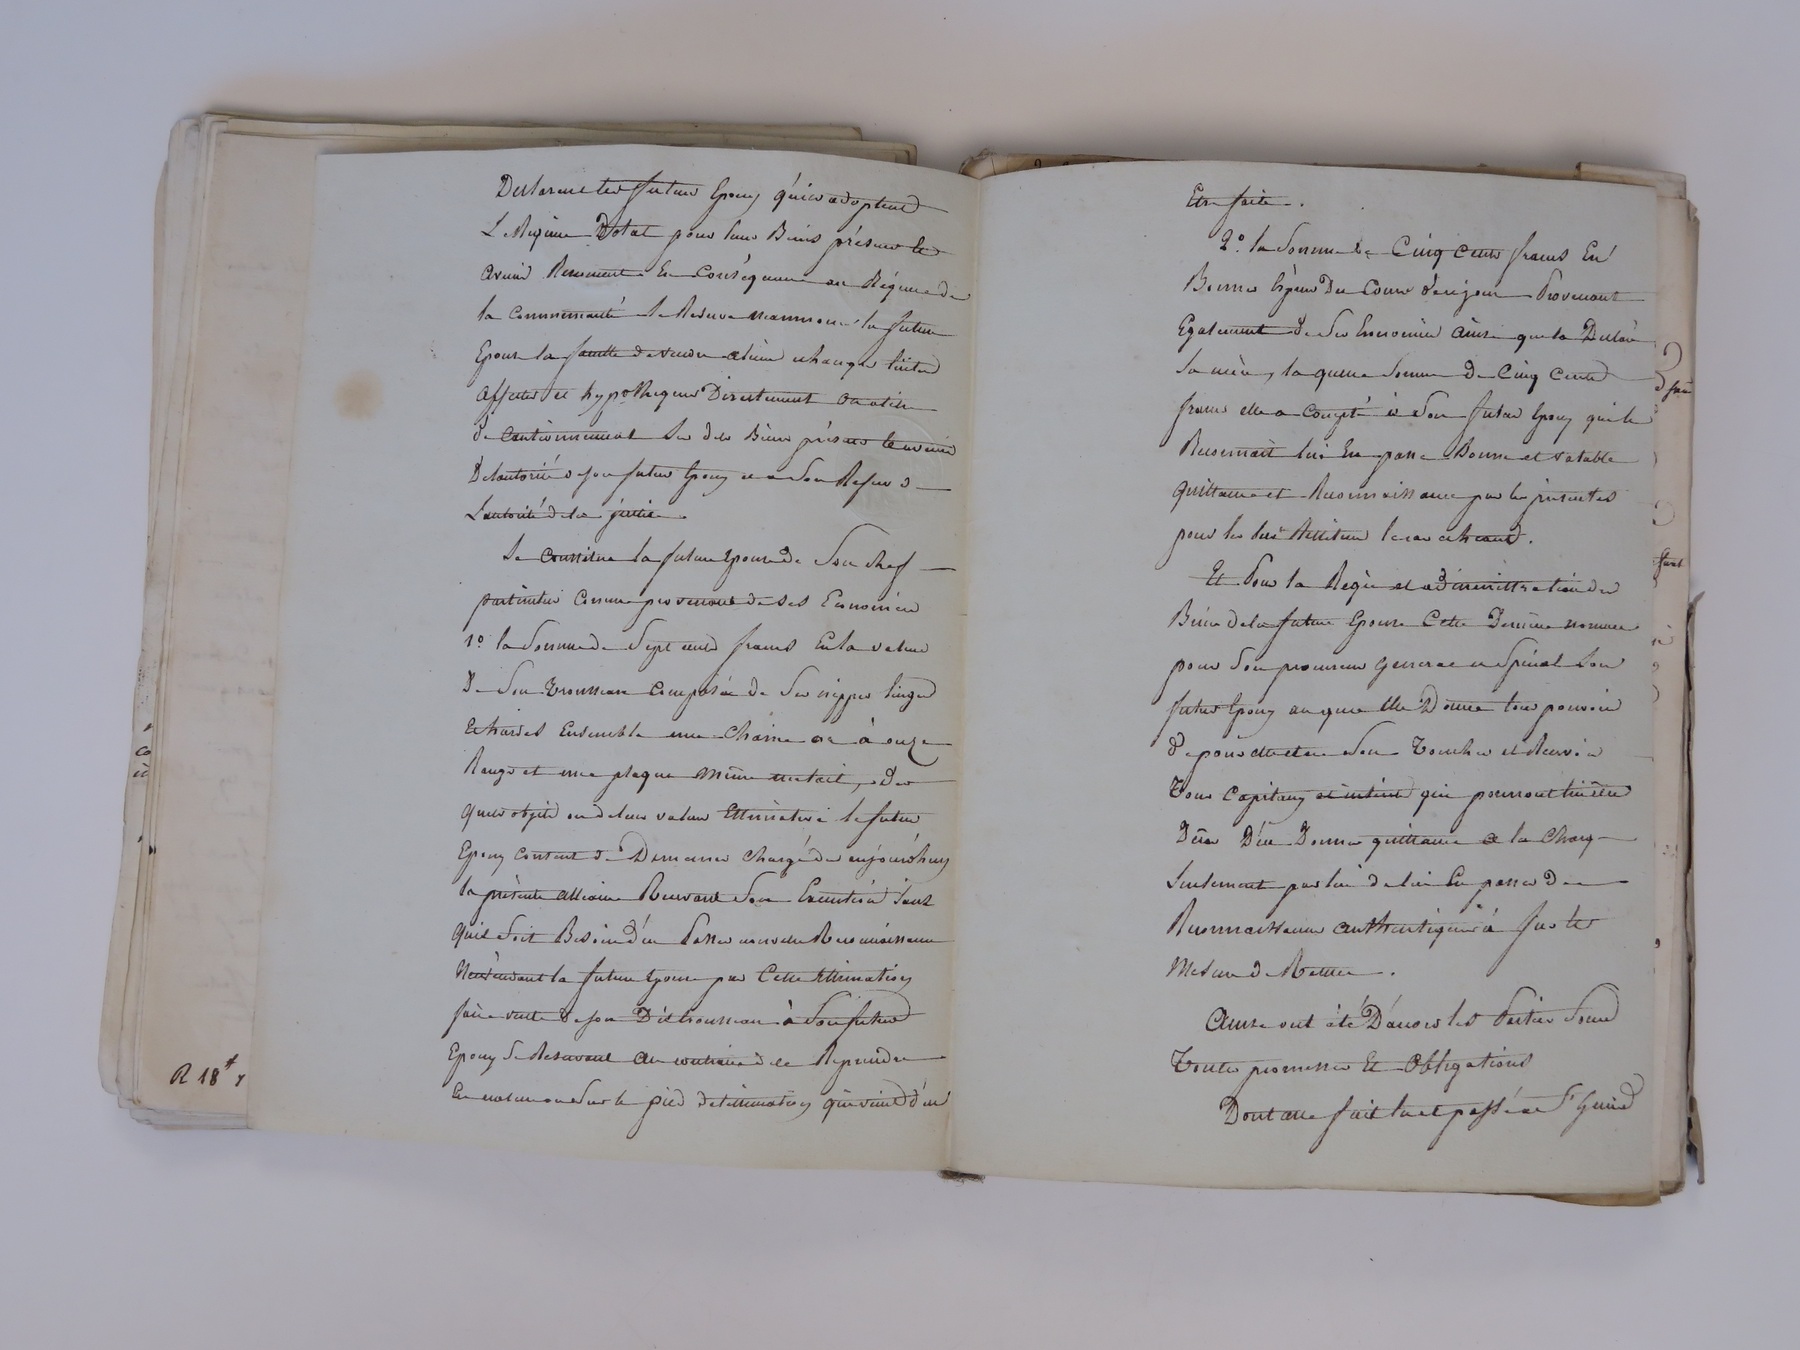 Declarent les futurs Epoux qu'ils adoptent
Le Regime Dotal pour leurs Biens présens et
avenir Renoncent En conséquence au Régime de
la Communauté se Reserve néanmoins la future
Epouse la faculté de vendre aliéner echanger traiter
affecter et hypothequer Directement ou a titre
de cautionnement ses dits Biens présens et avenir
De l'autorité de son futur Epoux et a son Refus de
L'autorité de la justice.
Se constitue la future Epouse de Son chef
particulier Comme provenant de ses Economies
1º. la Somme de Sept cents francs En la valeur
De Son Trousseau Composée de Ses nippes linges
Et hardes Ensemble une chaine or à onze
Rangs et une plaque même metail, des
quels objets ou de leur valeur Estimative le futur
Epoux Consent de Demeurer chargé dès aujourd'huy
la présente alliance Recevant Son Execution Sans
quil Soit Besoin d'en Passer nouvelle Reconnaissance
N'entendant la future Epouse par Cette Estimation
faire vente de son Dit trousseau à Son futur
Epoux Se Reservant au contraire de le Reprendre
En nature ou Sur le pied de l'estimation qui vient d'en
Etre faite.
2º. la Somme de Cinq Cents francs En
Bonnes Espèces Du Cours de ce jour Provenant
Egalement de Ses Economies ainsi que la Déclaré
Sa mère, la quelle Somme de Cinq Cents
francs elle a Compté à Son futur Epoux qui le
Reconnait lui En passe Bonne et valable
quittance et Reconnaissance par les présentes
pour les lui Restituer le cas echéant.
Et Pour la Régie et administration des
Biens de la future Epouse Cette Dernière nomme
pour Son procureur General et Spécial Son
futur Epoux au quel Elle Donne tout pouvoir
de pour elle et en Son Toucher et Recevoir
Tous Capitaux et intérêts qui pourront lui être
Dûs D'en Donner quittance a la Charge
Seulement par lui de lui En passer De
Reconnaissance authentique à fur et
Mesure de Recette.
Ainsi ont été D'accord les Parties Sous
Toutes promesses Et Obligations
Dont acte fait lu et passé a St Guird
R 18